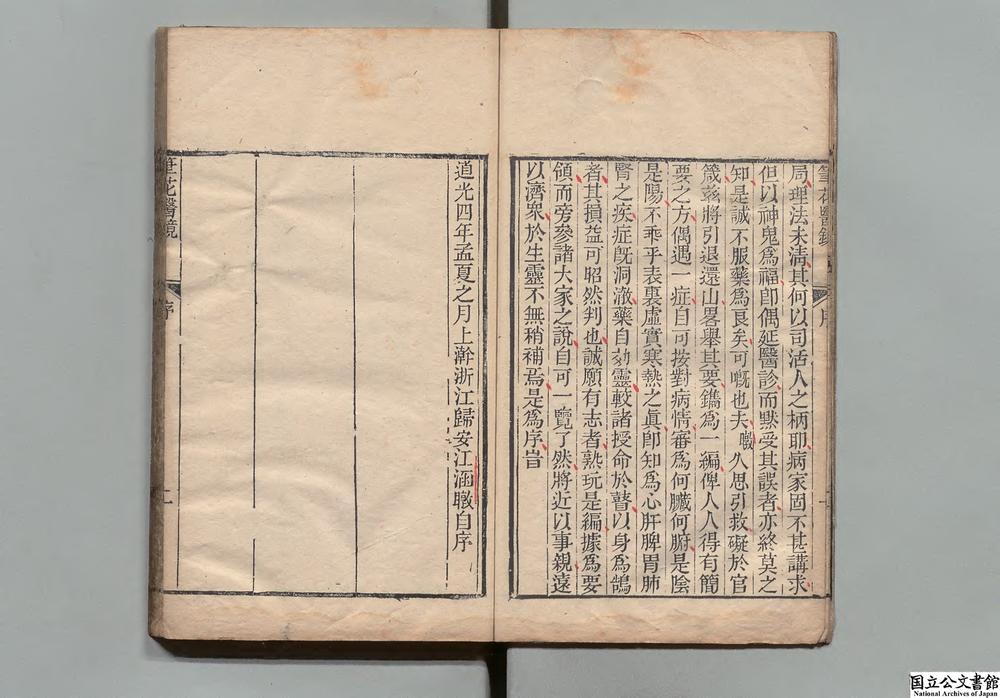 局理法未清其何以司活人之柄耶病家固不甚講求
但以神鬼爲福卽偶延醫診而黙受其誤者亦終莫之
知是誠不服藥爲良矣可嘅也夫暾久思引救礙於官
箴兹將引退還山畧舉其要鐫爲一編俾人人得有簡
要之方偶遇一症自可按對病情審爲何臟何腑是陰
是陽不乖乎表裏虛實寒熱之眞卽知爲心肝脾胃肺
腎之疾症旣洞澈藥自効靈較諸授命於瞽以身爲鵠
者其損益可昭然判也誠願有志者熟玩是編據爲要
領而旁參諸大家之說自可一覽了然將近以事親遠
以濟衆於生靈不無稍補焉是爲序旹
道光四年孟夏之月上澣浙江歸安江涵暾自序
筆花醫鏡
序
二
国立公文書館
National Archives of Japan